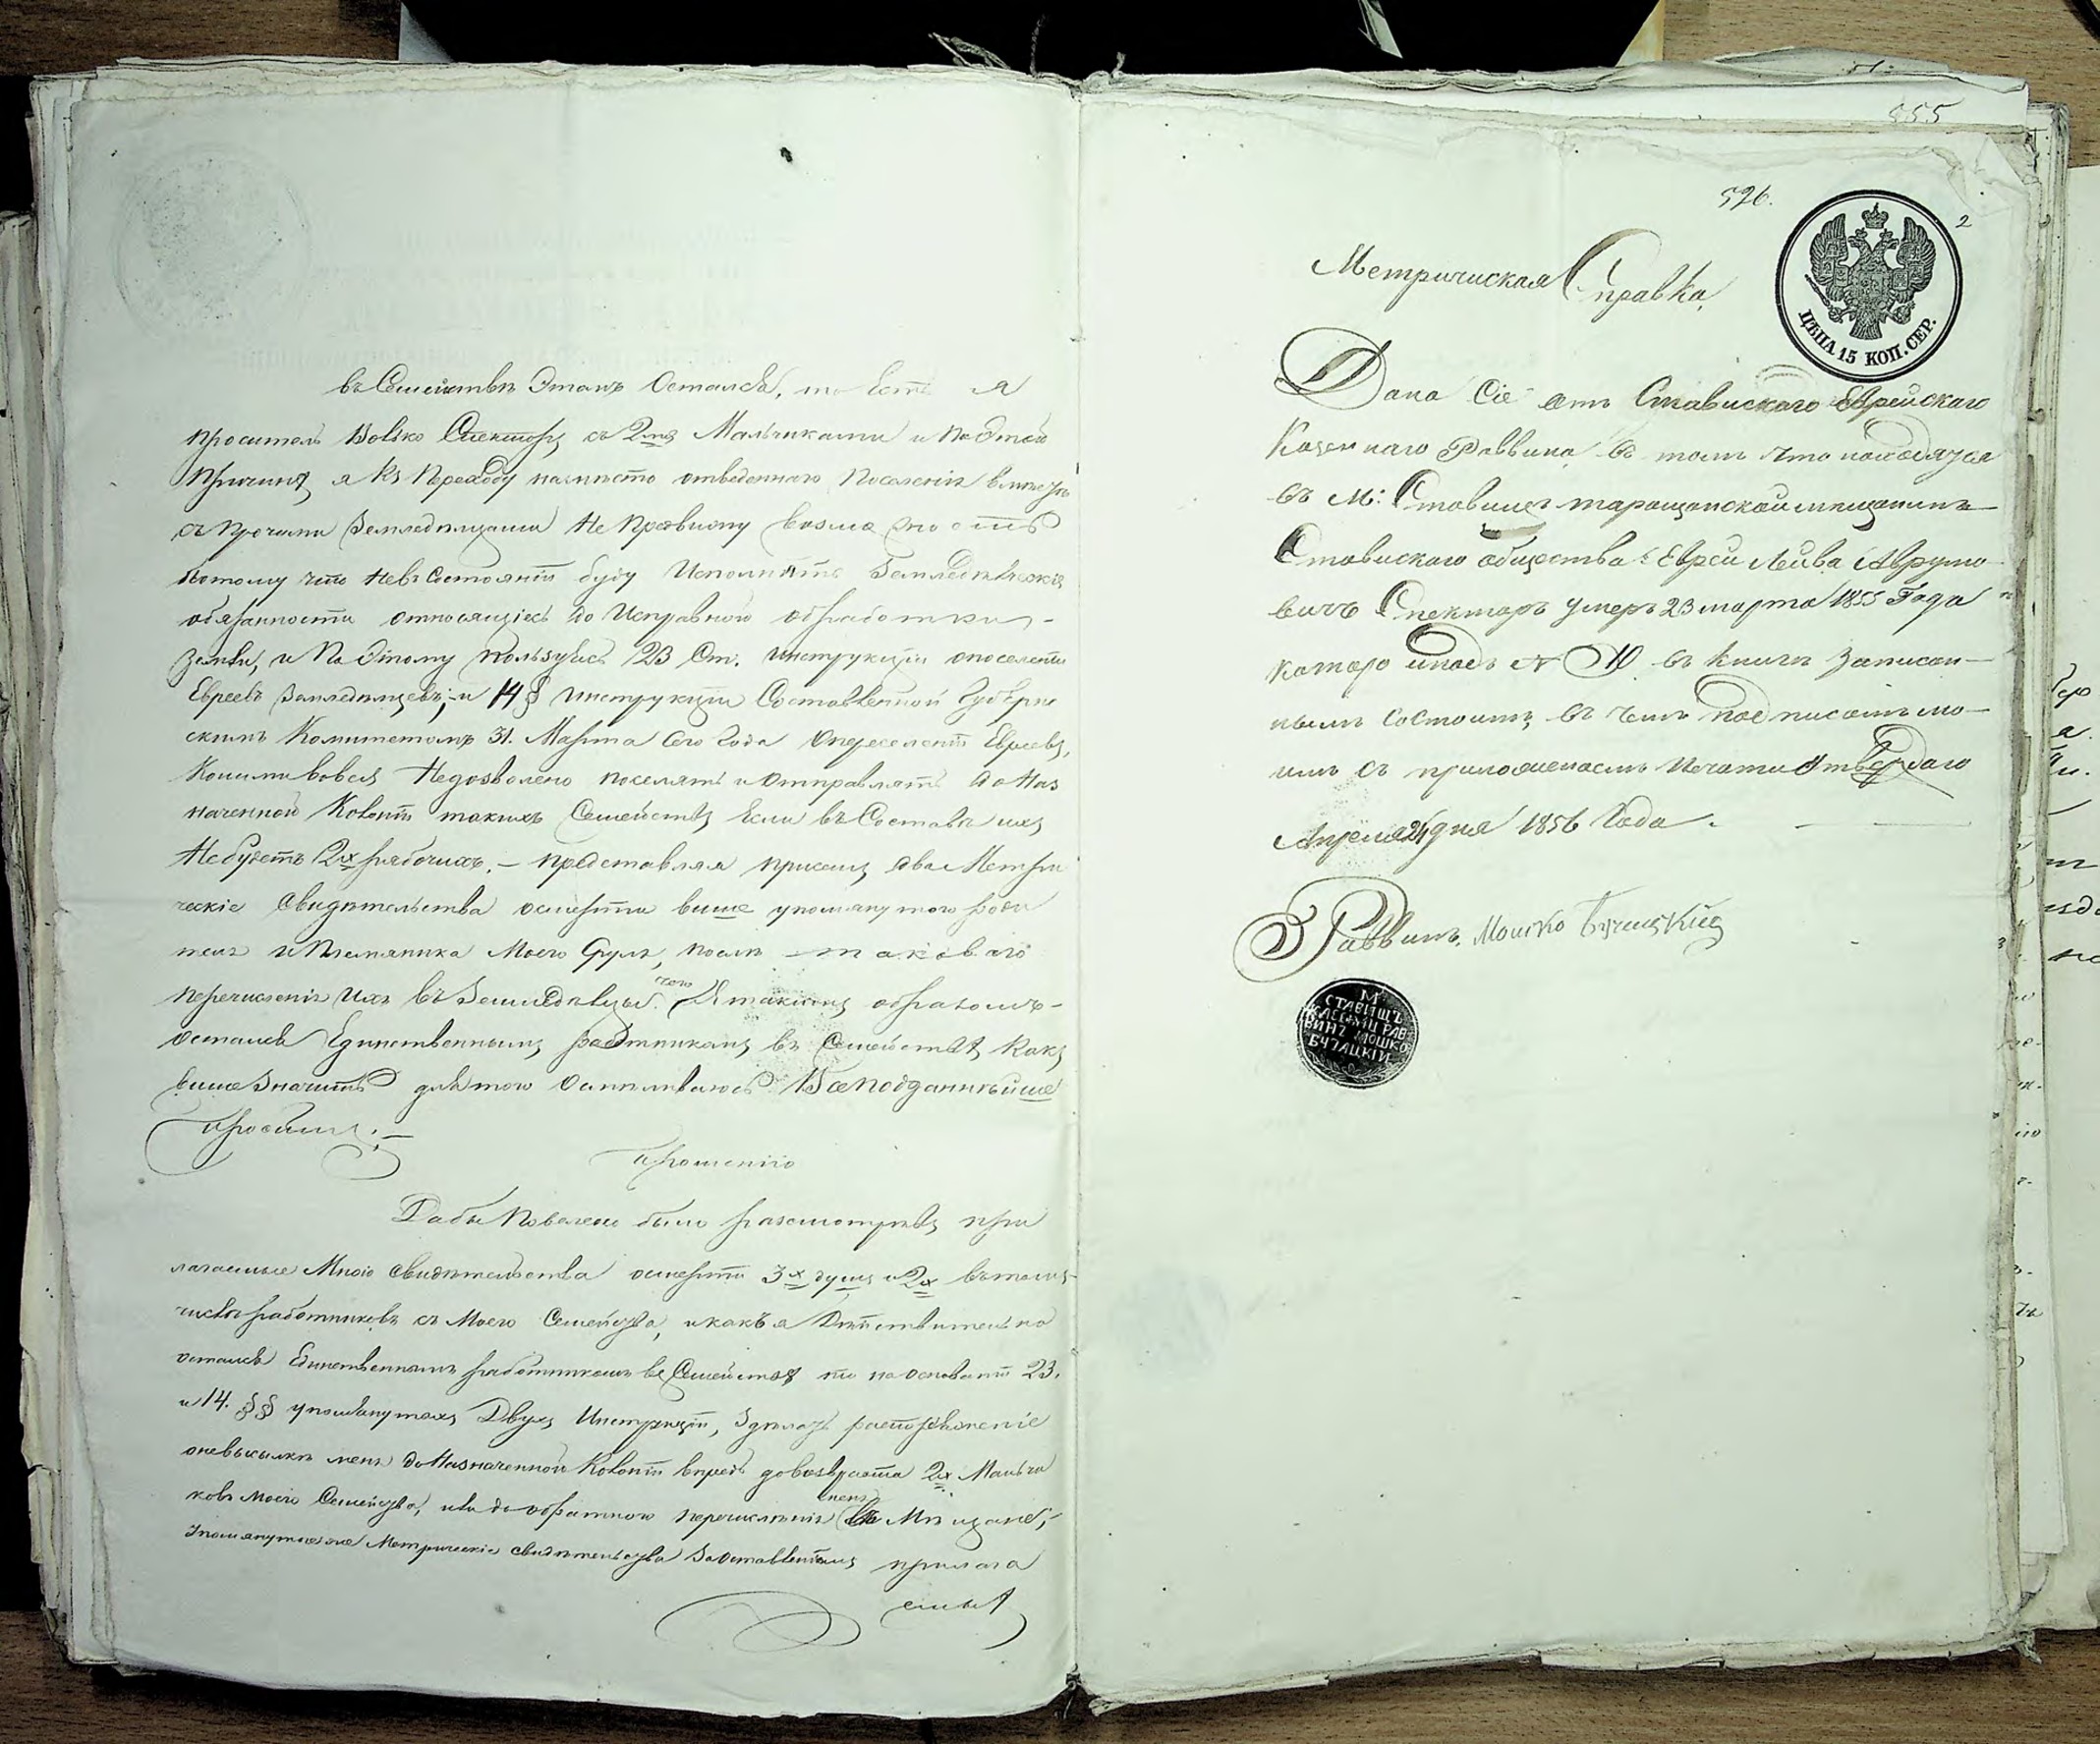 въ Семействѣ Этапъ Остался, то Есть я
проситель Волько Спекторъ съ 2мя Мальчиками и По Этой
Причинѣ я Къ Переходу на мѣсто отведенного Поселенія вмѣстѣ
съ прочими Земледѣлцами Не Предвижу возможность
Потому что Невъ Состояніи буду Исполнять Земледѣлческія
обязанности относящіесь до Исправной обработки
Земли, и По Этому Пользуясь 23 Ст. Инструкціи о поселеніи
Евреевъ Земледѣлцевъ, и 14 § Инструкціи Составленной Губерн
скимъ Комитетомъ 31. Марта Сего Года О переселеніи Евреевъ,
Недозволено поселять и Отправлять до Наз
наченной Колоніи такихъ Семействъ Если въ Составѣ ихъ
Небудетъ 2хъ рабочихъ. – представляя при семъ два Метри
ческіе Свидѣтельства о смерти више упомянутого роди
теля и Племянника Моего Сруля, послѣ таковаго
перечисленія Ихъ въ Земледѣлцы. Я такимъ образомъ
остался Единственнымъ работникомъ въ Семействѣ Какъ
више Значитъ для того Осмѣливаюсь Всеподданнѣйше
просить; –
Прошеніе
Дабы Повелено было разсмотрѣвъ при
лагаемые Мною Свидѣтельства о смерти 3х душъ и 2х въ томъ
числѣ работниковъ съ Моего Семейства, и какъ я Дѣйствительно
остался Единственнымъ работникомъ въ Семействѣ то на основаніи 23.
и 14. §§ упомянутыхъ Двухъ Инструкціи, Здѣлать распоряженіе
о невысылкѣ меня до Назначенной Колоніи впредь до возвраста 2х Мальчи
ковъ Моего Семейства, или до обратного перечисленія меня въ Мѣщане,
Упомянутые же Метрическіе Свидѣтельства прилага
емы
855
526.
2
Метричиская Справка,
ЦѢНА 15 КОП. СЕР.
Дана Сіе отъ Ставискаго Еврейскаго
Казеннаго Раввина въ томъ что находяся
въ М: Ставищѣ таращанской мещанинъ
Ставискаго общества Еврей Лейба Аврумо
вичъ Спекторъ умеръ 23 марта 1855 Года
которо подъ № 10 въ книгѣ Записан–
нымъ Состоитъ, въ чемъ подписомъ мо–
имъ съ приложениемъ Печати Отверждаю
Апреля 24 дня 1856 Года.
Раввинъ, Мошко Бучацкій
М
СТАВИЩЪ
РАВ
ВИНЪ МОШКО
БУЧАЦКІЙ